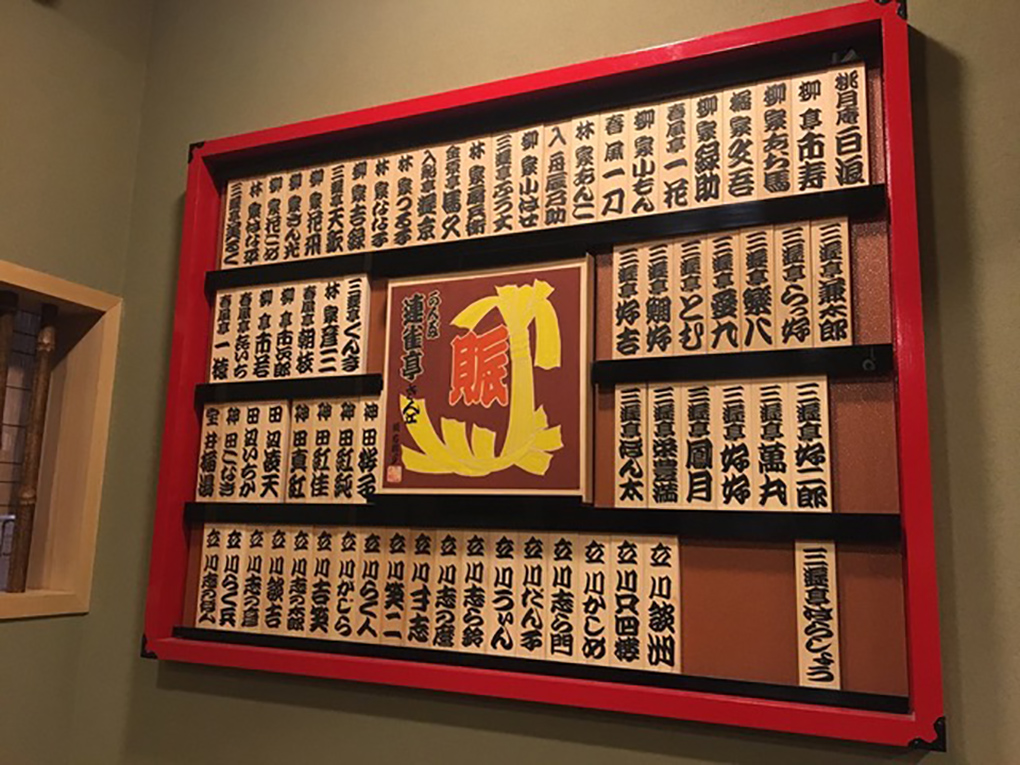 桃月庵白浪
柳亭市寿
柳家あお馬
橘家文吾
柳家緑助
春風亭一花
柳家小もん
春風一刀
林家あんこ
入舟辰乃助
柳家小はぜ
三遊亭ふう丈
林家扇兵衛
金原亭馬久
入船亭遊京
林家つる子
林家なな子
柳家吉緑
三遊亭天歌
柳家花飛
柳家さん光
柳家花ごめ
林家はな平
三遊亭
三遊亭兼太郎
三遊亭らっ好
三遊亭楽八
三遊亭愛九
三遊亭とむ
三遊亭鯛好
三遊亭好吉
連雀亭さん江
賑
三遊亭ぐんま
林家彦三
春風亭朝枝
柳亭市次郎
柳亭市若
春風亭きいち
春風亭一猿
三遊亭好二郎
三遊亭萬丸
三遊亭好好
三遊亭鳳月
三遊亭栄豊満
三遊亭ぽん太
神田桜子
神田紅純
神田紅佳
神田真紅
田辺凌天
田辺いちか
神田こなぎ
宝井梅湯
三遊亭はらしょう
立川談州
立川只四楼
立川かしめ
立川志ら門
立川だん子
立川うぃん
立川志ら鈴
立川志の麿
立川寸志
立川笑二
立川らく人
立川がじら
立川吉笑
立川志の太郎
立川談吉
立川志の彦
立川らく兵
立川志のぽん